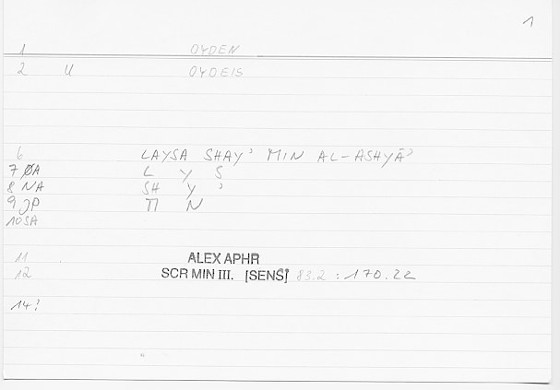 1
1 OYDEN
2 U OYDEIS
6 LAYSA SHAYʾ MIN AL-ASHYĀʾ
7 ØA L Y S
8 NA SH Y ʾ
9 JP M N
10 SA
11 ALEX APHR
12 SCR MIN III. [SENS] 83.2 : 170.22
14?